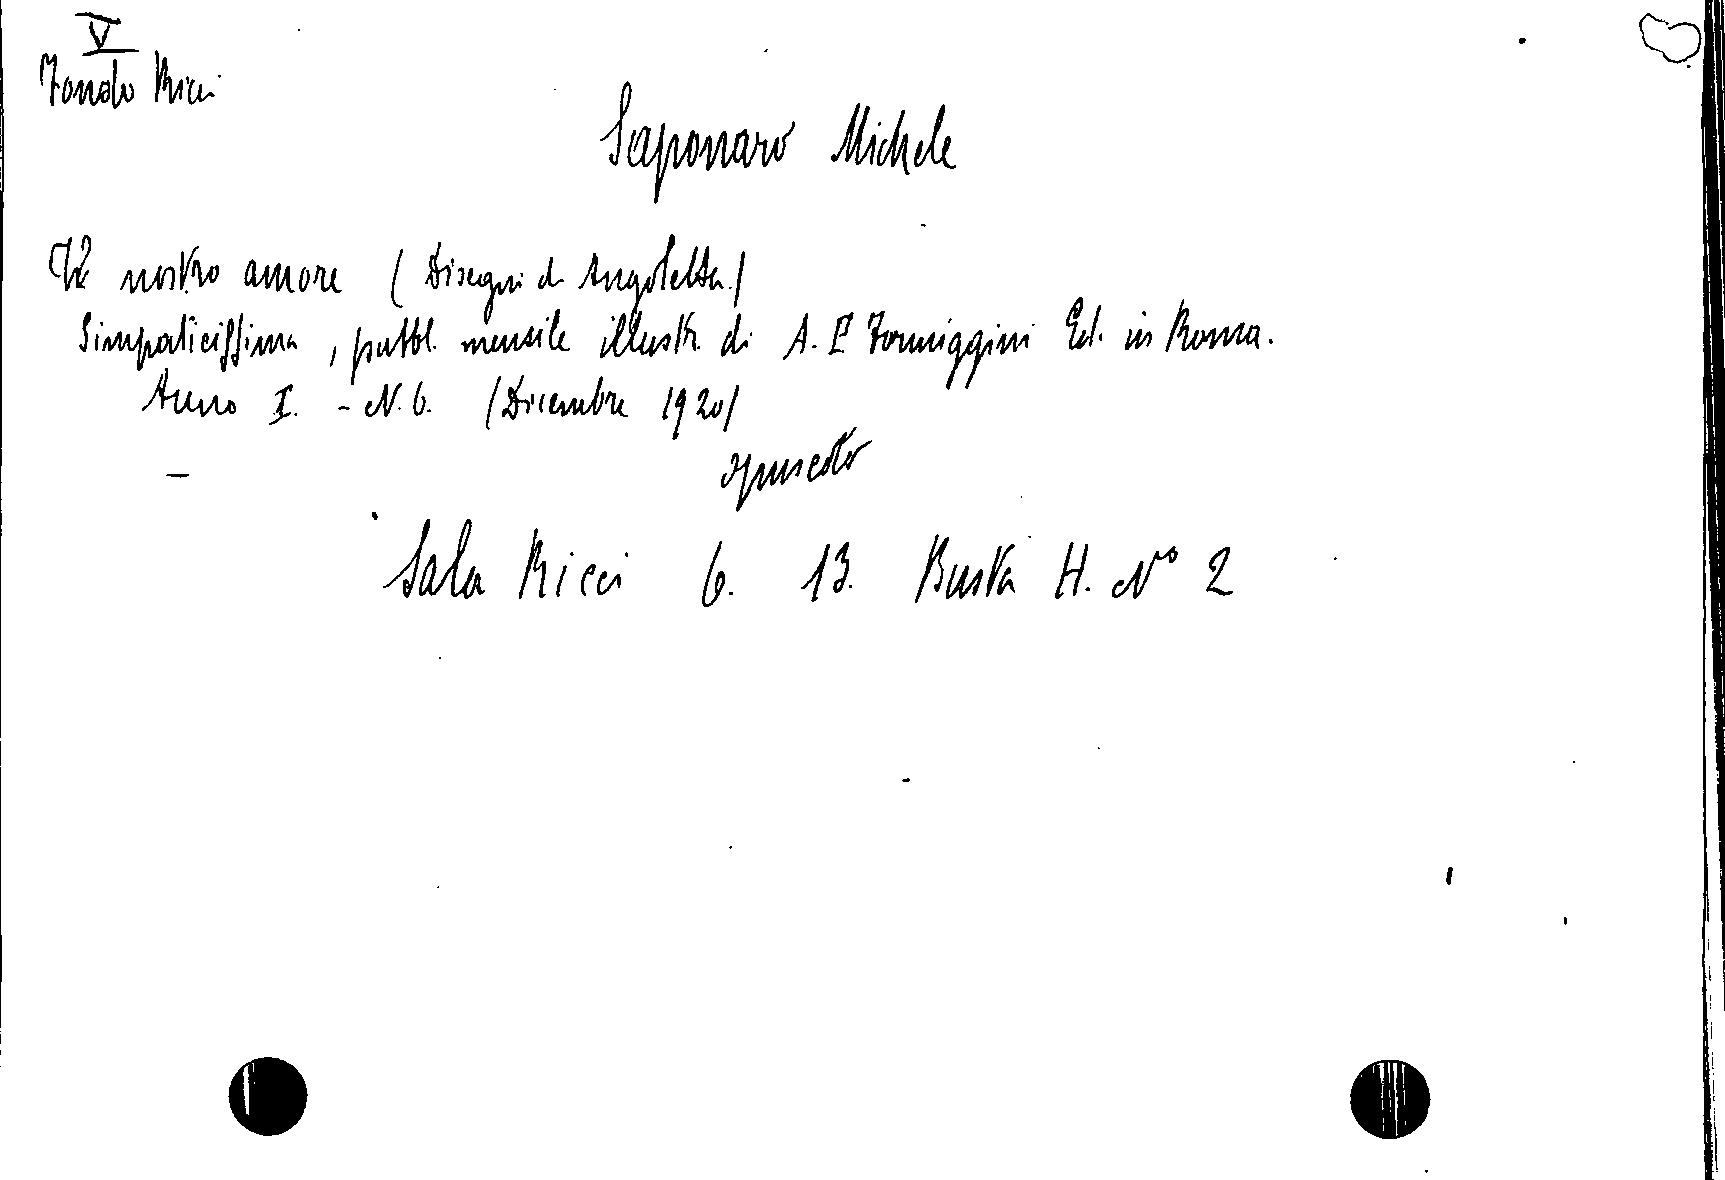 V
Fondo Ricci
Saponaro Michele
Il nostro amore (Disegni di Angoletta)
Simpaticissima, pubbl. mensile illustr. di A. F. Formiggini Ed. in Roma.
Anno I. - N. 6. (Dicembre 1920)
—
opuscolo
Sala Ricci 6. 13. Busta H. N° 2